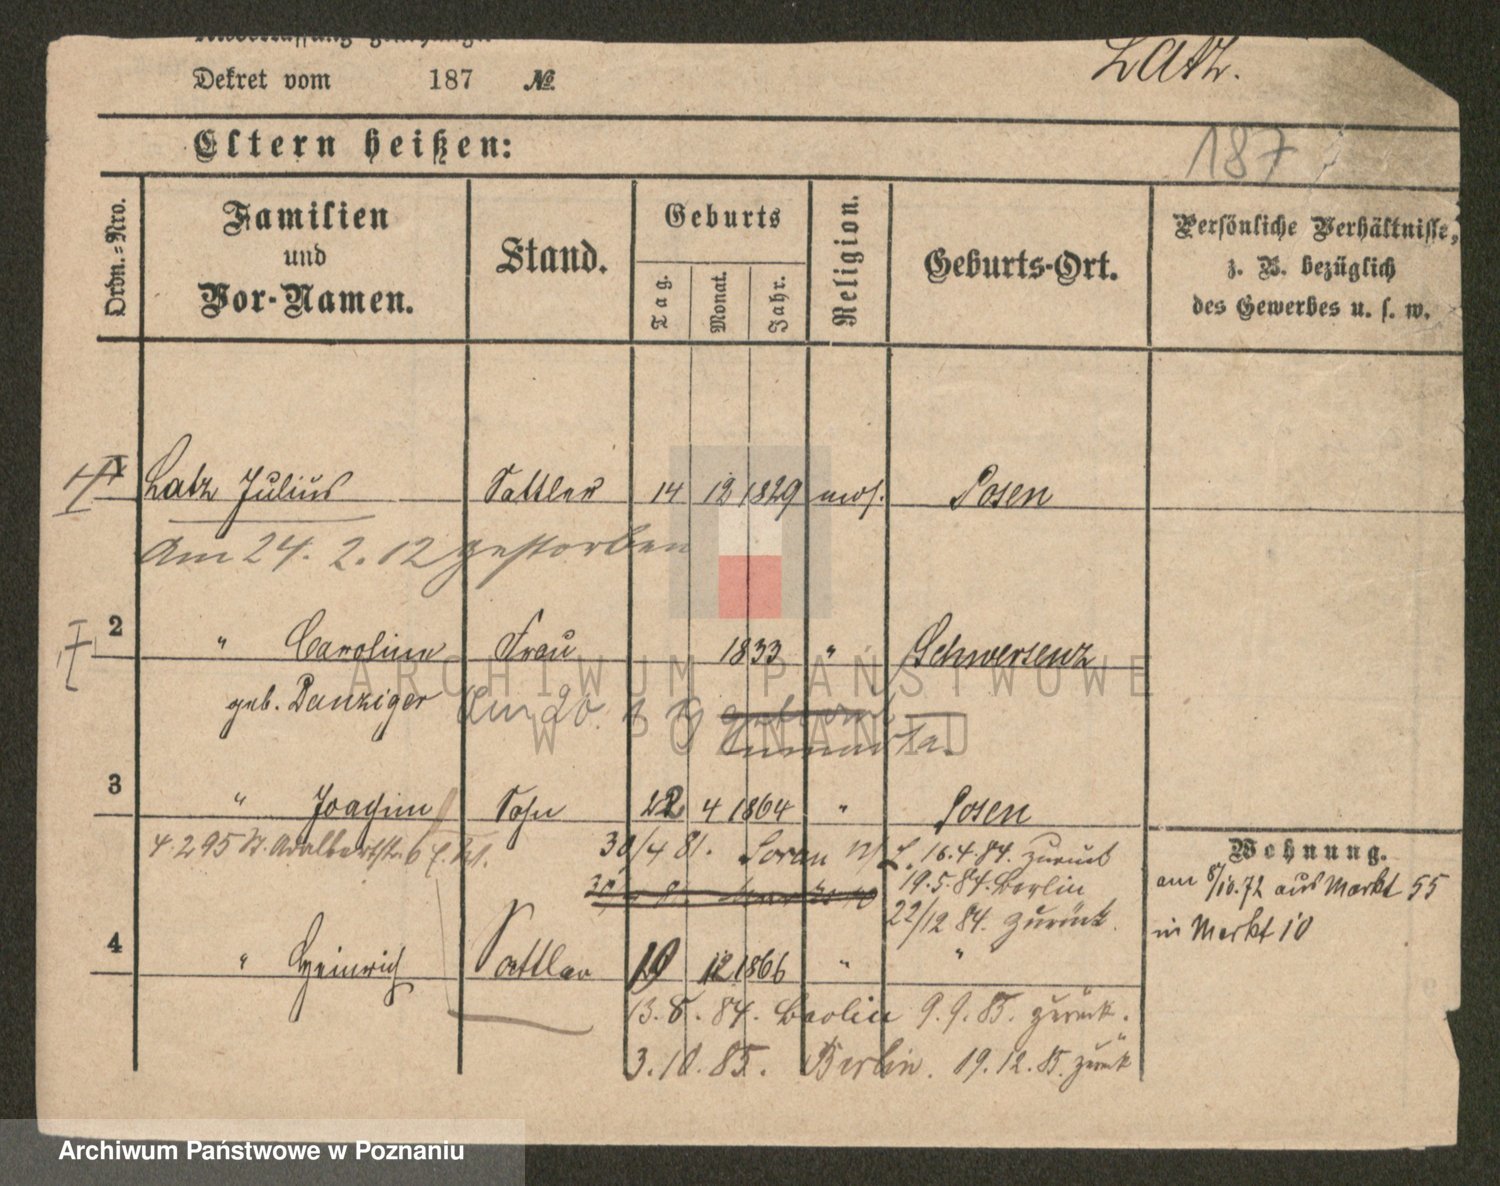 Latz.
Dekret vom 187 №
Eltern heißen:
187
Ordn.=Nro.
Familien
und
Vor-Namen.
Stand.
Geburts
Tag.
Monat.
Jahr.
Religion.
Geburts-Ort.
Persönliche Verhältnisse,
z. B. bezüglich
des Gewerbes u. s. w.
1 Latz Julius Sattler 14 12 1829 mos. Posen
Am 24. 2. 12 gestorben
2 " Caroline Frau 1833 " Schwersenz
geb. Danziger Am 20.
3 " Joachim Sohn 22 4 1864 " Posen
4. 2 95 Adalbertstr. 6
30/4 81. Soran 16.4.84. zurück
19.5.84. Berlin
22/12 84. zurück.
Wohnung.
am 8/10.72 aus Markt 55
in Markt 10
4 " Heinrich Sattler 10 12 1866 " "
13.8.84. Berlin 9.9.85. zurück.
3.10.85. Berlin. 19.12.85. zurück
ARCHIWUM PAŃSTWOWE
W POZNANIU
Archiwum Państwowe w Poznaniu